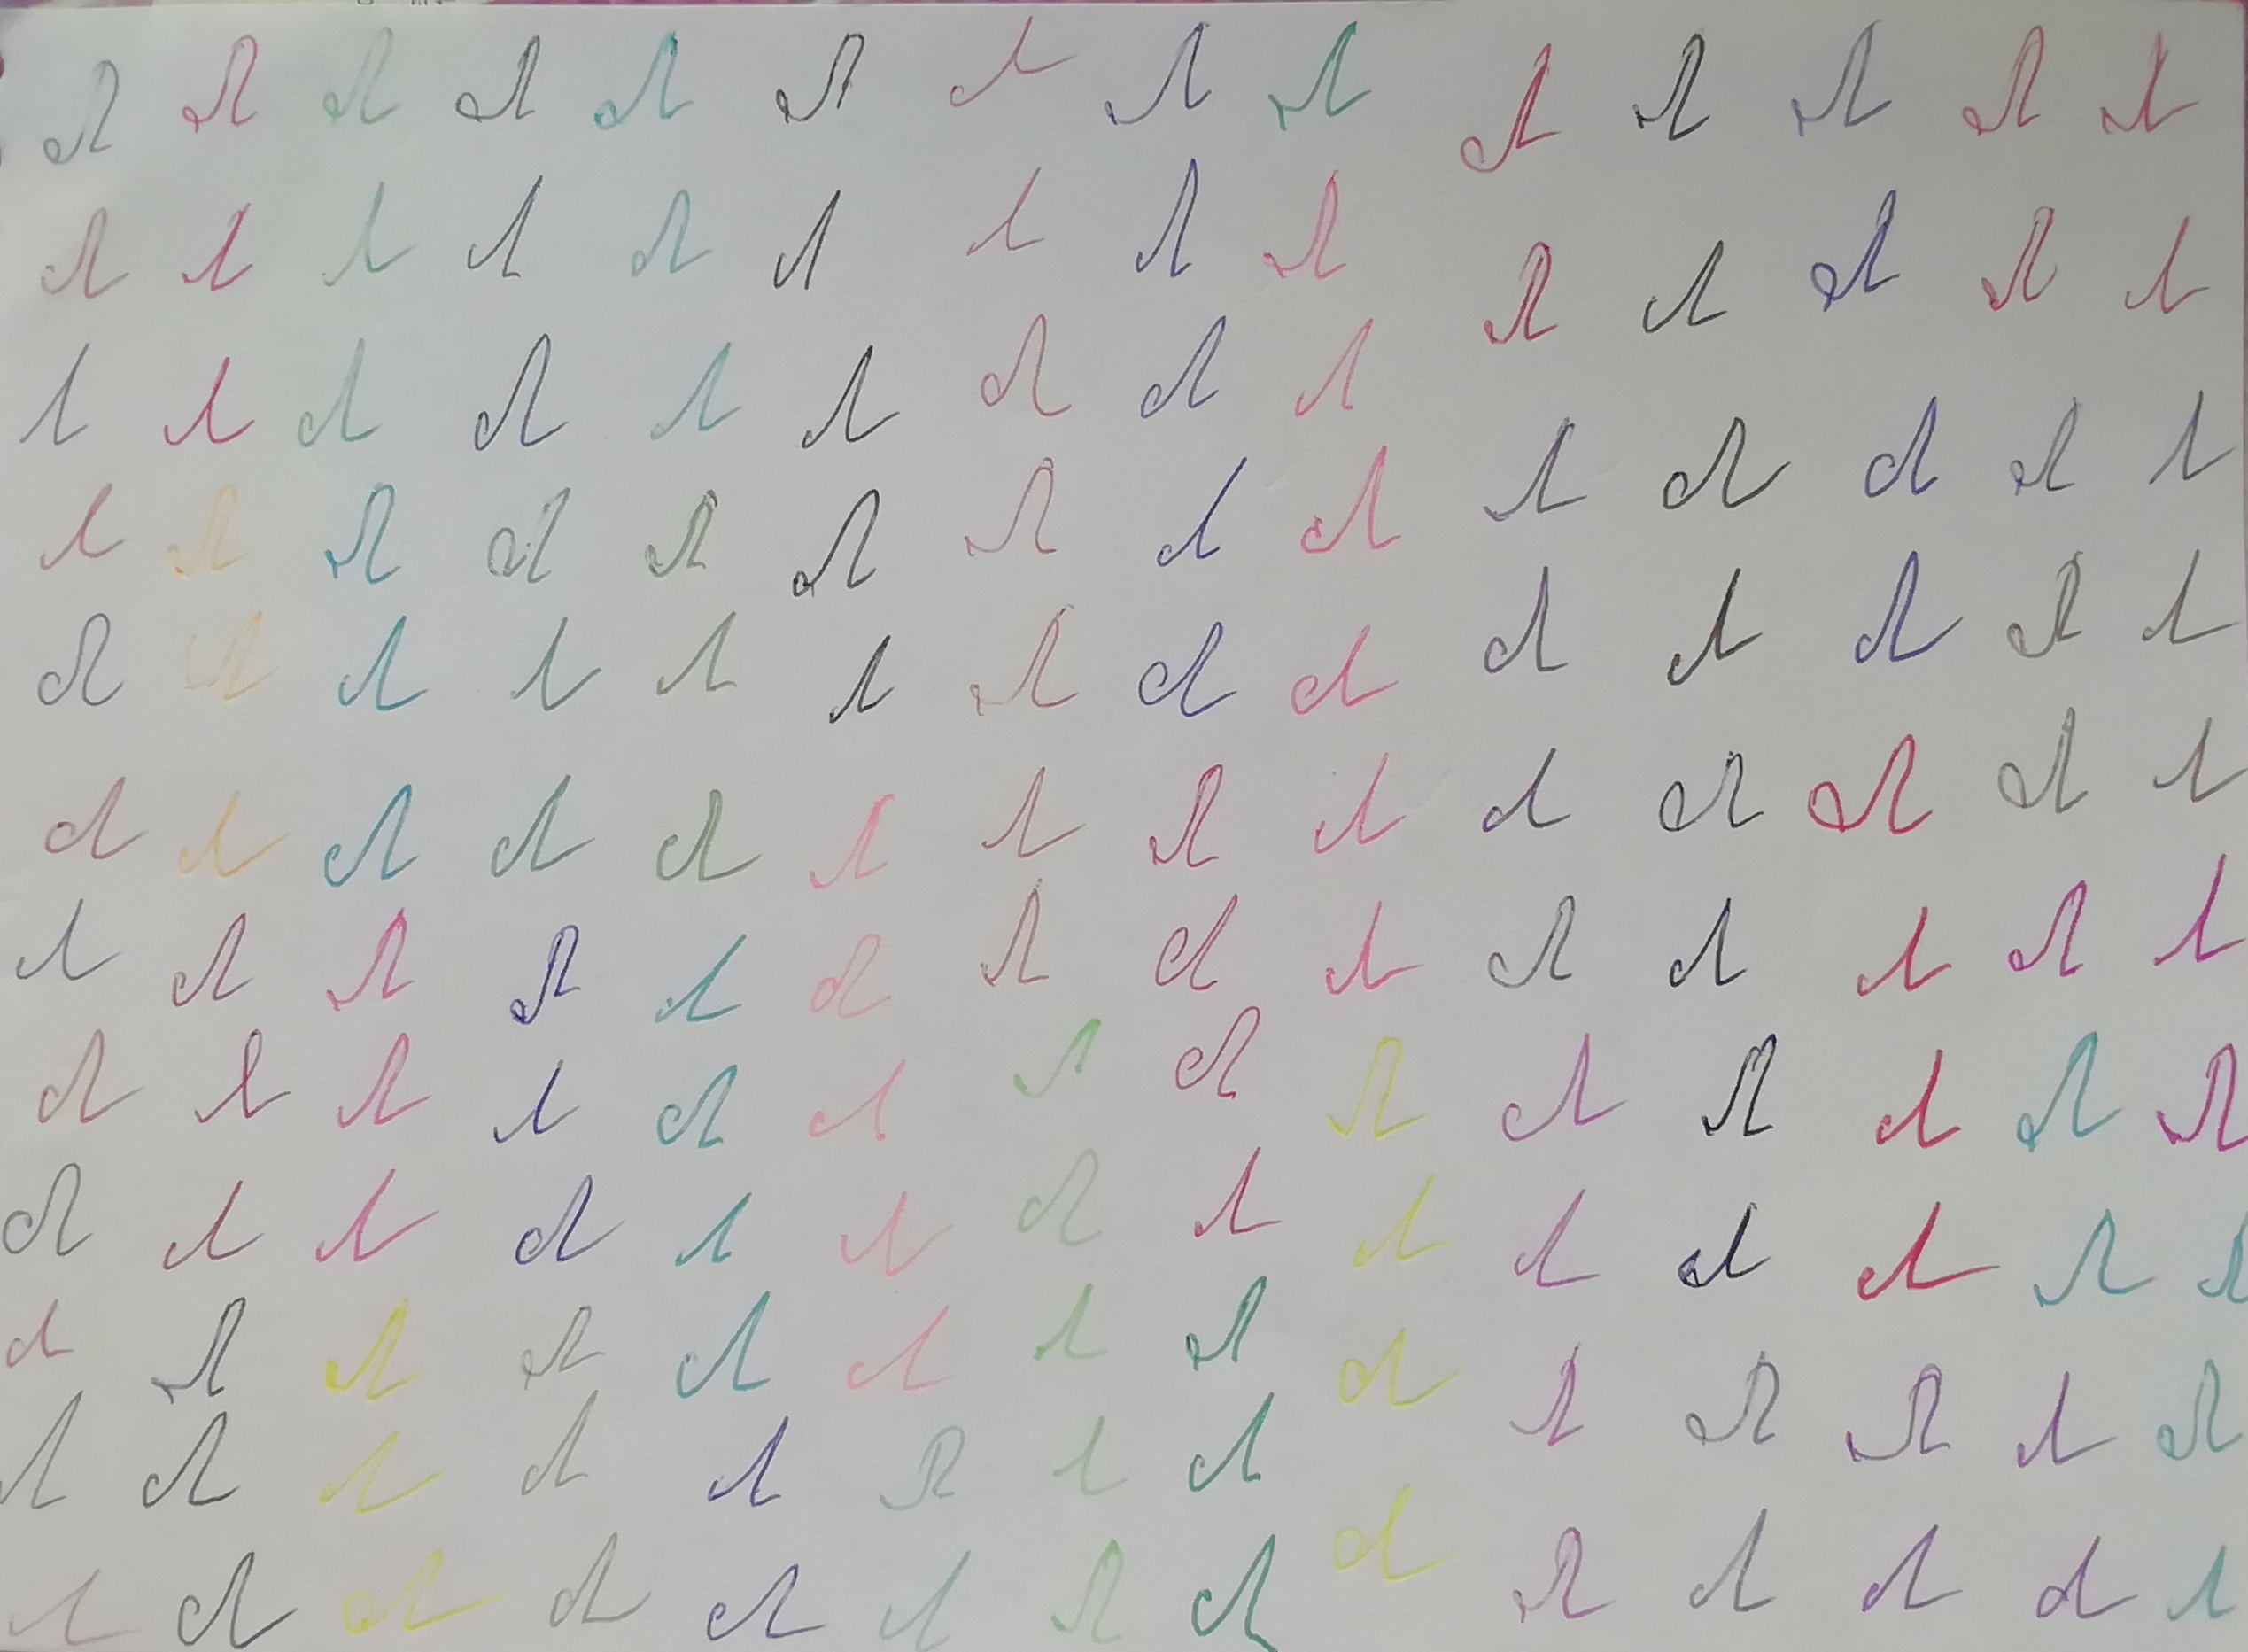 Л Л Л Л Л Л Л Л Л Л Л Л Л Л
Л Л Л Л Л Л Л Л Л Л Л Л Л Л
Л Л Л Л Л Л Л Л Л Л Л Л Л Л
Л Л Л Л Л Л Л Л Л Л Л Л Л Л
Л Л Л Л Л Л Л Л Л Л Л Л Л Л
Л Л Л Л Л Л Л Л Л Л Л Л Л Л
Л Л Л Л Л Л Л Л Л Л Л Л Л Л
Л Л Л Л Л Л Л Л Л Л Л Л Л Л
Л Л Л Л Л Л Л Л Л Л Л Л Л Л
Л Л Л Л Л Л Л Л Л Л Л Л Л Л
Л Л Л Л Л Л Л Л Л
Л Л Л Л Л Л Л Л